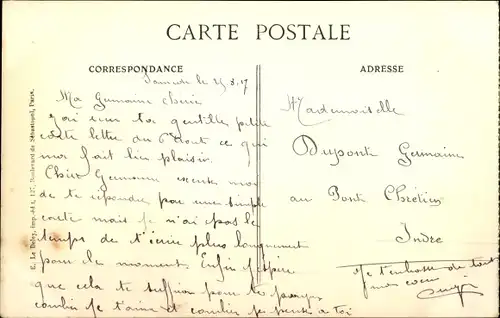 CARTE POSTALE
CORRESPONDANCE
ADRESSE
Samedi le 25.8.17
Ma Germaine chérie
J'ai eu ta gentille petite
carte lettre du 6 Août ce qui
m'a fait bien plaisir.
Chère Germaine excuse moi
de te répondre par une simple
carte mais je n'ai pas le
temps de t'écrire plus longuement
pour le moment. Enfin j'espère
que cela te suffira pour te
combien je t'aime et combien je pense à toi
Mademoiselle
Dupont Germaine
au Pont Chrétien
Indre
Je t'embrasse de tout
mon coeur
E. Le Deley, imp.-édit., 127, Boulevard de Sébastopol, Paris.